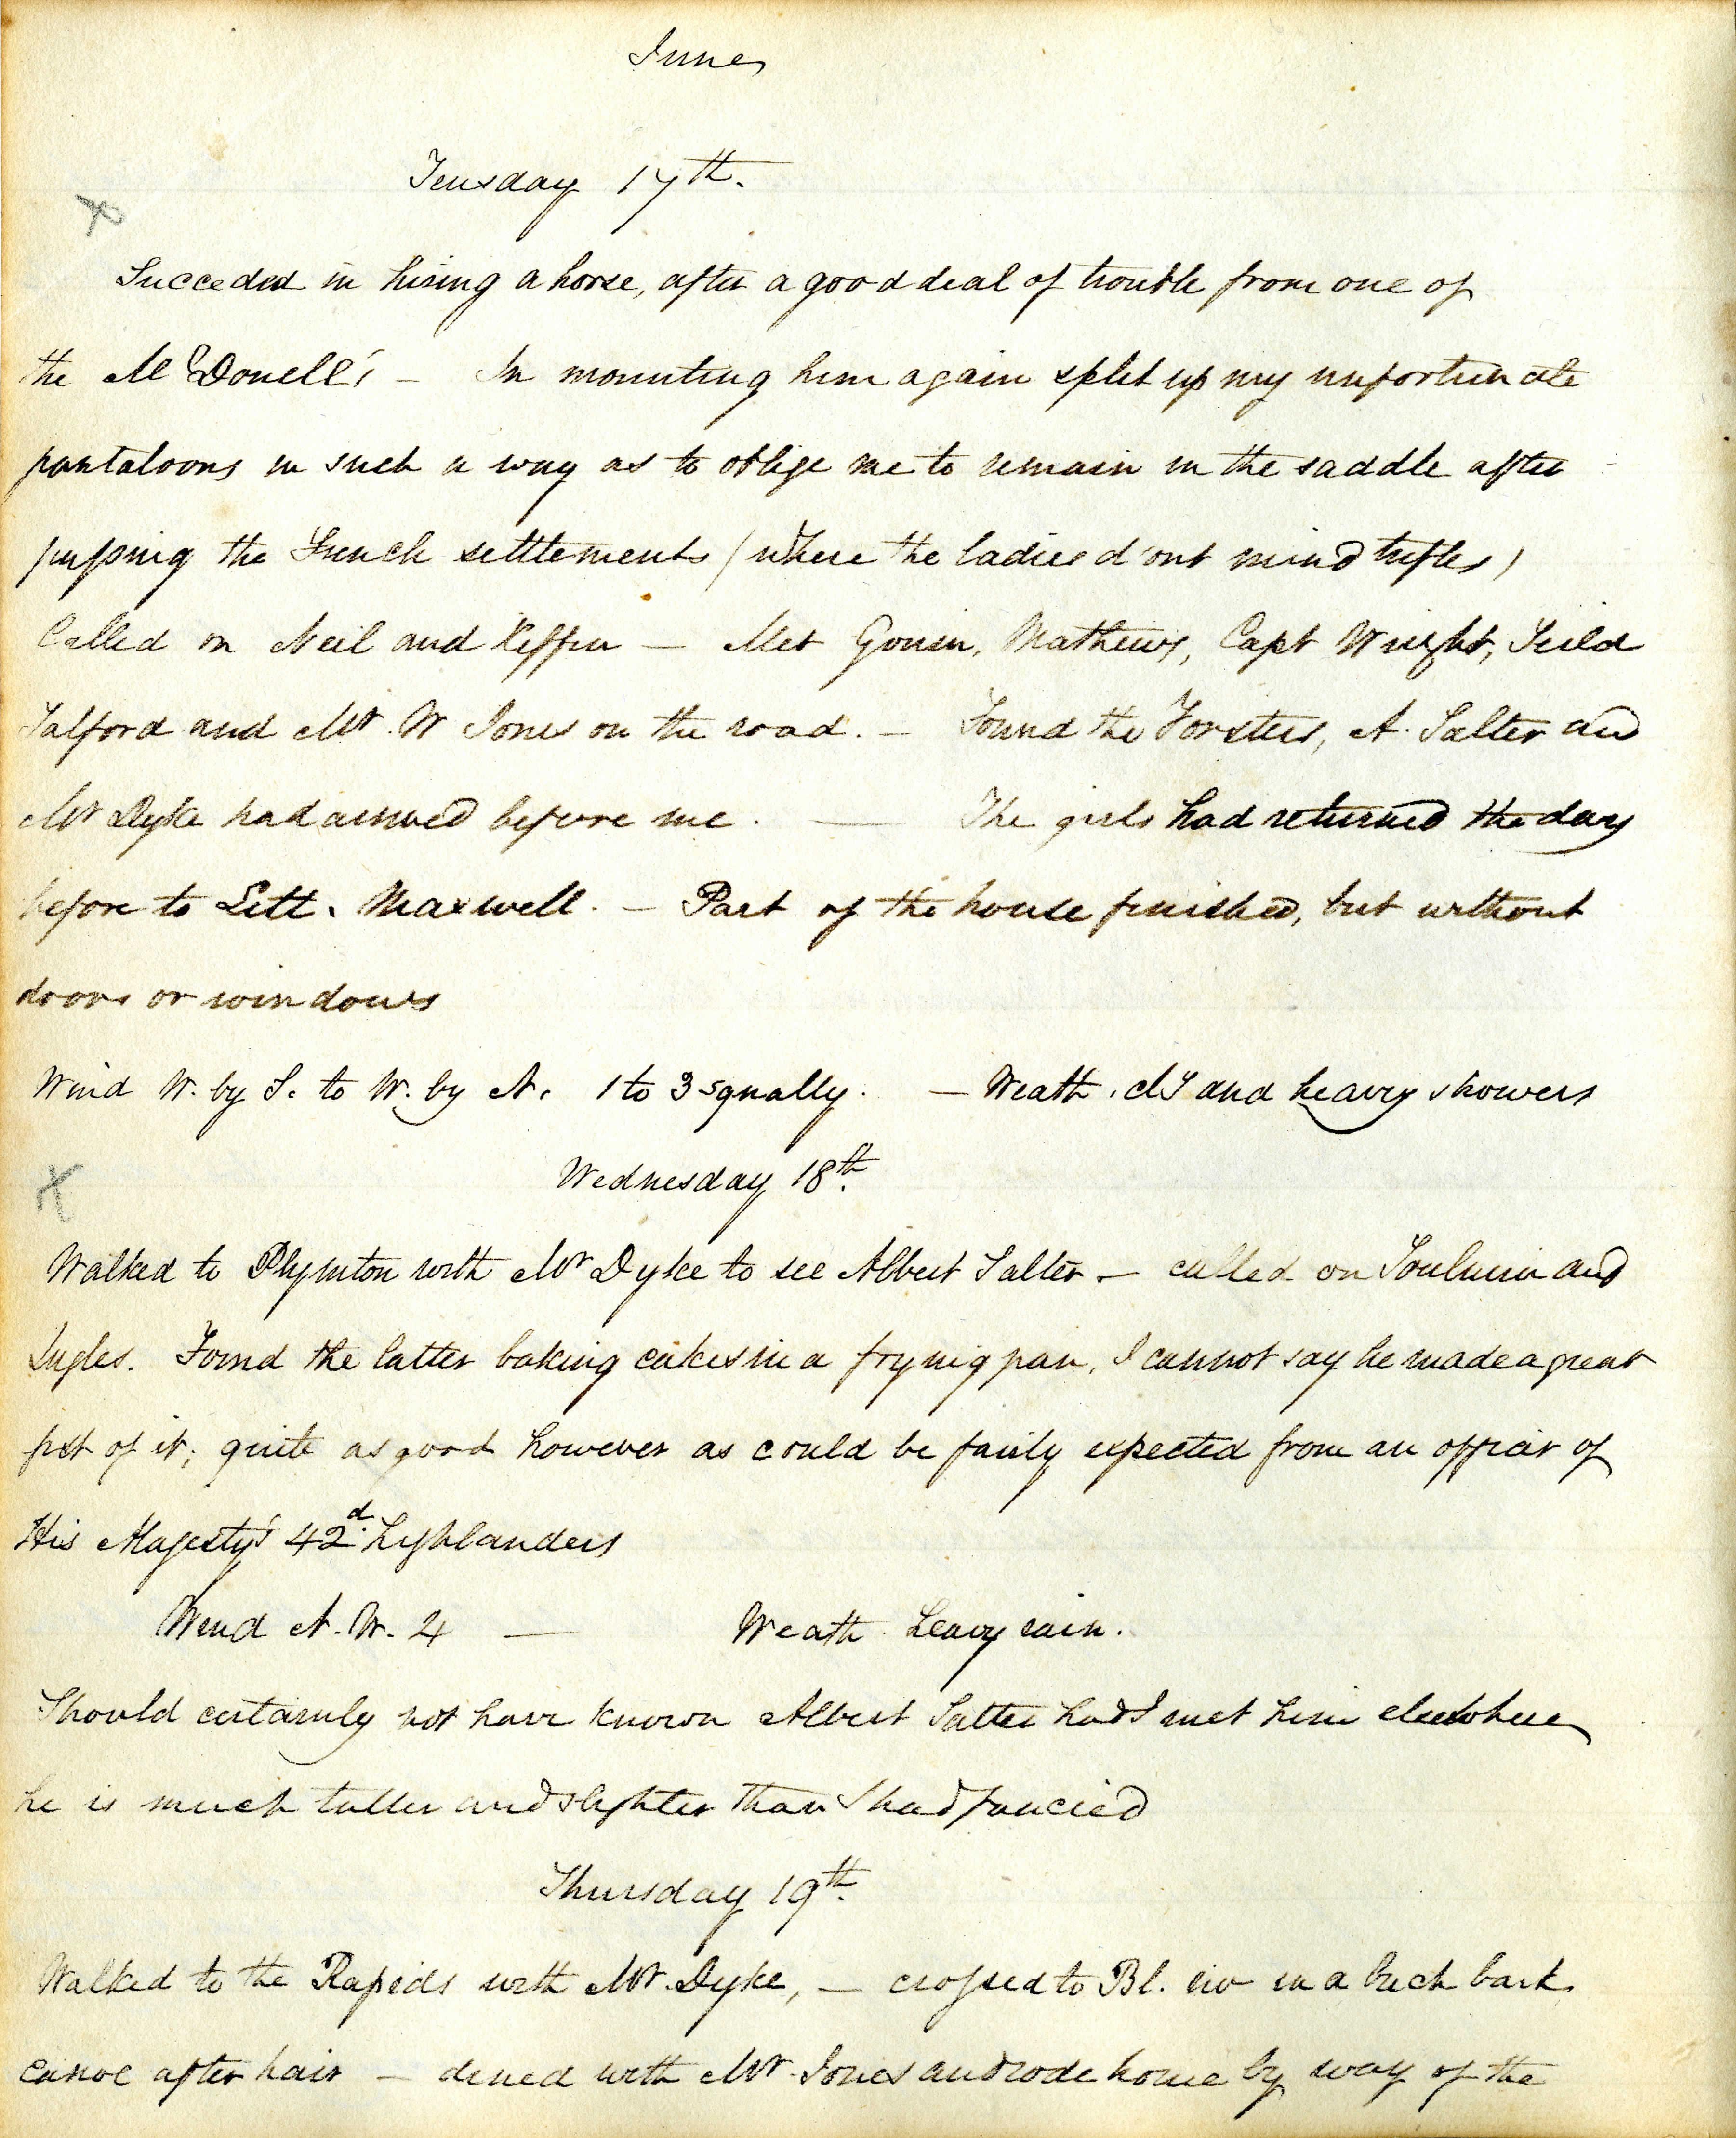 June
Teusday 17th.
Succeded in hiring a horse, after a good deal of trouble from one of
the McDonell's – In mounting him again split up my unfortunate
pantaloons in such a way as to oblige me to remain in the saddle after
passing the French settlements (where the ladies d'ont mind trifles)
Called on Neil and Keffer — Met Gouin, Mathews, Capt Wright, Feild
Talford and Mr. W Jones on the road. – Found the Forsters, A. Salter and
Mr Dyke had arrived before me. — The girls had returned the day
before to Sett. Maxwell. – Part of the house finished, but without
doors or windows
Wind W. by S. to W. by N. 1 to 3 squally. – Weath. and heavy showers
Wednesday 18th.
Walked to Plymton with Mr Dyke to see Albert Salter – called on and
Ingles. Found the latter baking cakes in a frynig pan, I cannot say he made a great
fist of it; quite as good however as could be fairly expected from an officer of
His Majesty's 42d. highlanders
Wind N. W. 4 — Weath heavy rain.
Should certainly not have known Albert Salter had I met him elsewhere
he is much taller and slighter than I had fancied
Thursday 19th.
Walked to the Rapids with Mr. Dyke, – crossed to Bl. riv in a birch bark
canoe after hair – dined with Mr. Jones and rode home by way of the